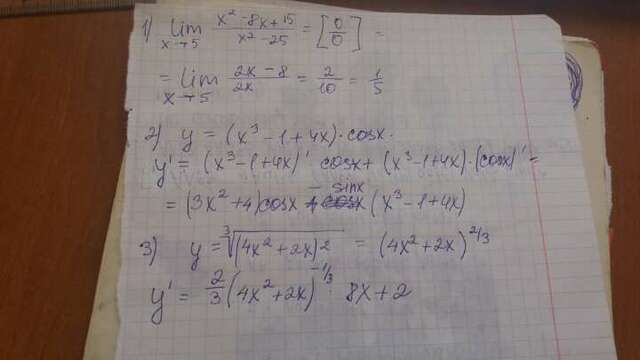 1) lim x→5 (x² - 8x + 15)/(x² - 25) = [0/0] =
= lim x→5 (2x - 8)/(2x) = 2/10 = 1/5
2) y = (x³ - 1 + 4x) · cosx.
y' = (x³ - 1 + 4x)' cosx + (x³ - 1 + 4x) · (cosx)' =
= (3x² + 4) cosx - sinx (x³ - 1 + 4x)
3) y = ∛(4x² + 2x)² = (4x² + 2x)^2/3
y' = 2/3 (4x² + 2x)^-1/3 · 8x + 2